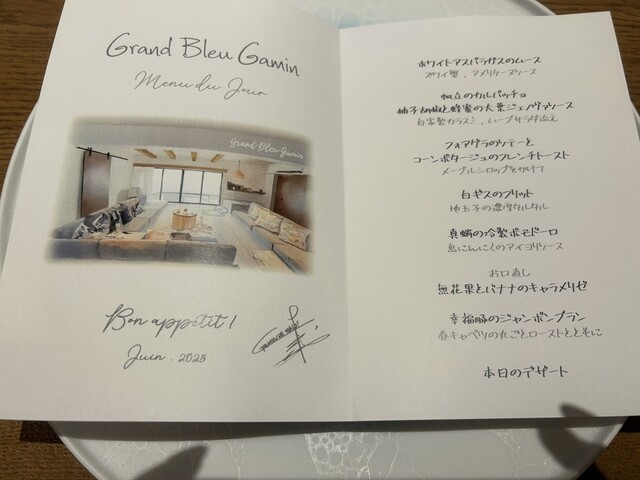 Grand Bleu Gamin
Menu du Jour
Grand Bleu Gamin
Bon appétit !
Juin . 2025
ホワイトアスパラガスのムース
ズワイ蟹 , アメリケーヌソース
帆立のカルパッチョ
柚子胡椒と蜂蜜の大葉ジェノヴァソース
自家製カラスミ , ハーブサラダ添え
フォアグラのソテーと
コーンポタージュのフレンチトースト
メープルシロップをかけて
白ギスのフリット
地玉子の濃厚タルタル
真蛸の冷製ポモドーロ
島にんにくのアイヨリソース
お口直し
無花果とバナナのキャラメリゼ
幸福豚のジャンボンブラン
春キャベツの丸ごとローストとともに
本日のデザート